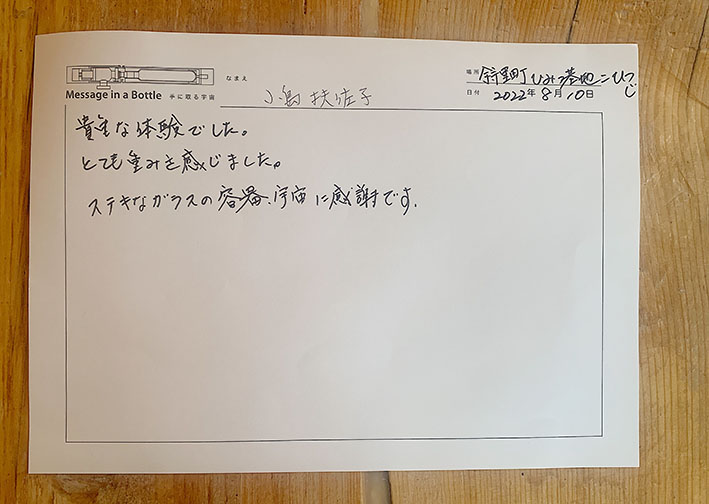 なまえ 小島 扶佐子
場所 斜里町 ひみつ基地こひつじ
Message in a Bottle 手に取る宇宙
日付 2022年 8月 10日
貴重な体験でした。
とても重みを感じました。
ステキなガラスの容器、宇宙に感謝です.